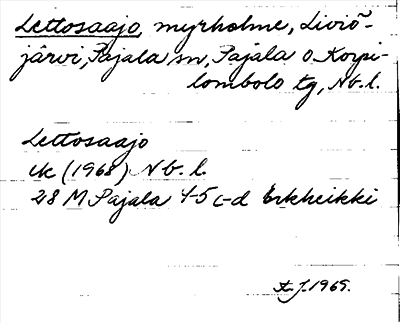 Lettosaajo, myrholme, Liviö-
järvi, Pajala sn, Pajala o. Korpi-
lombolo tg, Nb.l.
Lettosaajo
ek (1968) Nb. l.
28 M Pajala 4-5 c-d Erkheikki
1969.